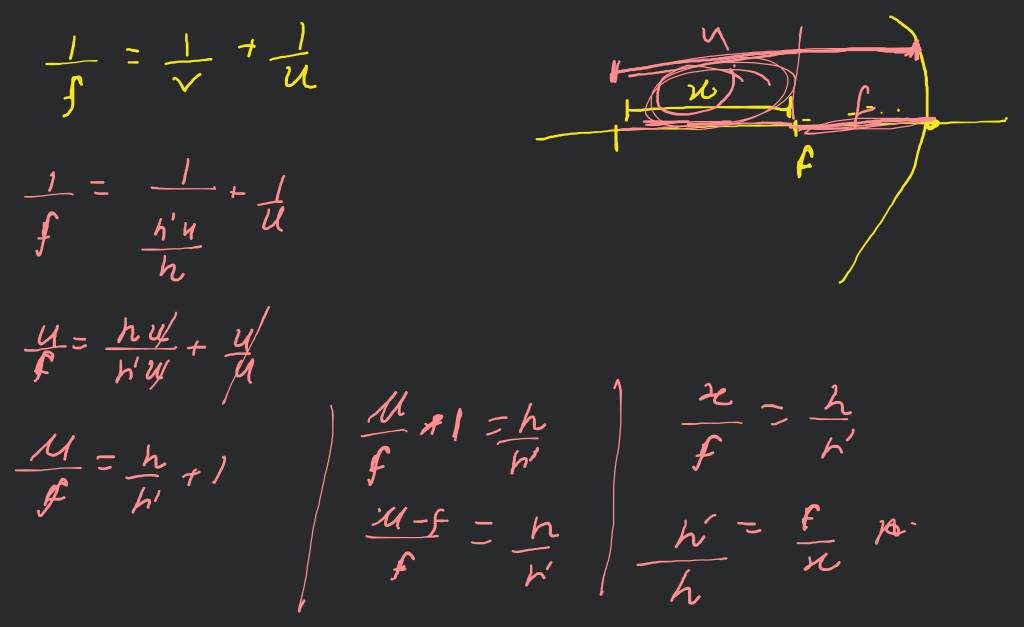 1/f = 1/v + 1/u
1/f = 1/(h'u/h) + 1/u
u/f = hu/h'u + u/u
u/f = h/h' + 1
u/f - 1 = h/h'
u-f/f = h/h'
x/f = h/h'
h'/h = f/x
u
x
f
F